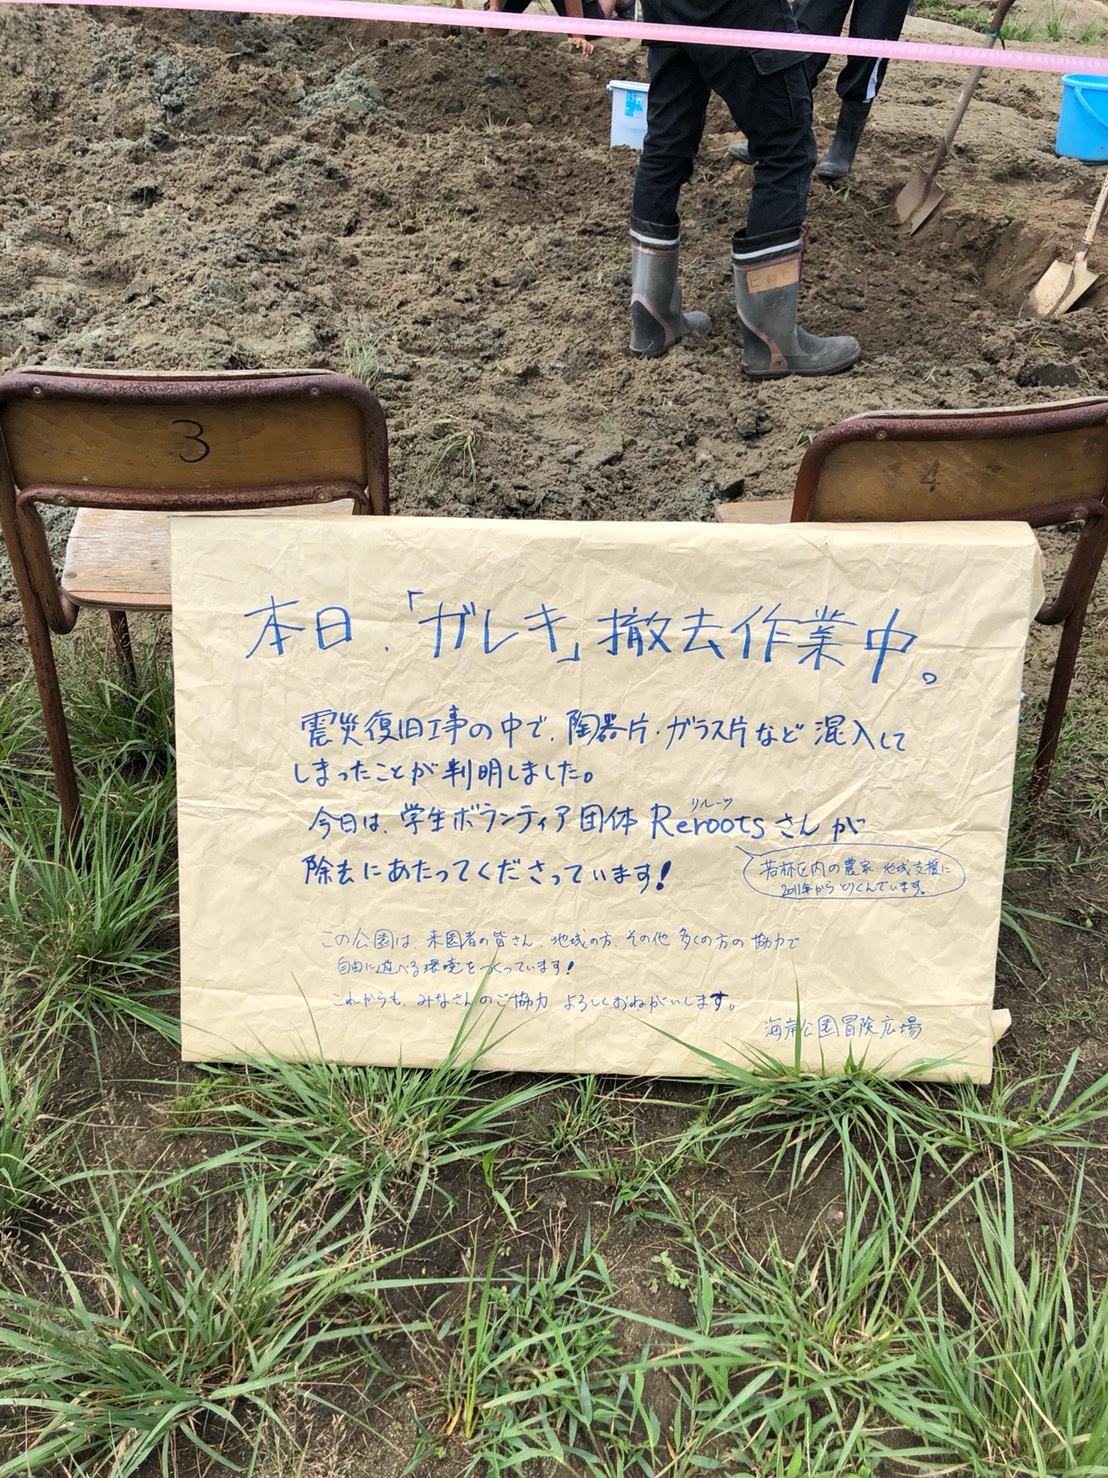 3
4
本日、「ガレキ」撤去作業中。
震災復旧工事の中で、陶器片・ガラス片など混入して
しまったことが判明しました。
今日は、学生ボランティア団体 Rerootsさんが
リルーツ
除去にあたってくださっています!
若林区内の農家・地域支援に
2011年からとりくんでいます。
この公園は、来園者の皆さん、地域の方、その他多くの方の協力で
自由に遊べる環境をつくっています!
これからも、みなさんのご協力 よろしくおねがいします。
海岸公園冒険広場